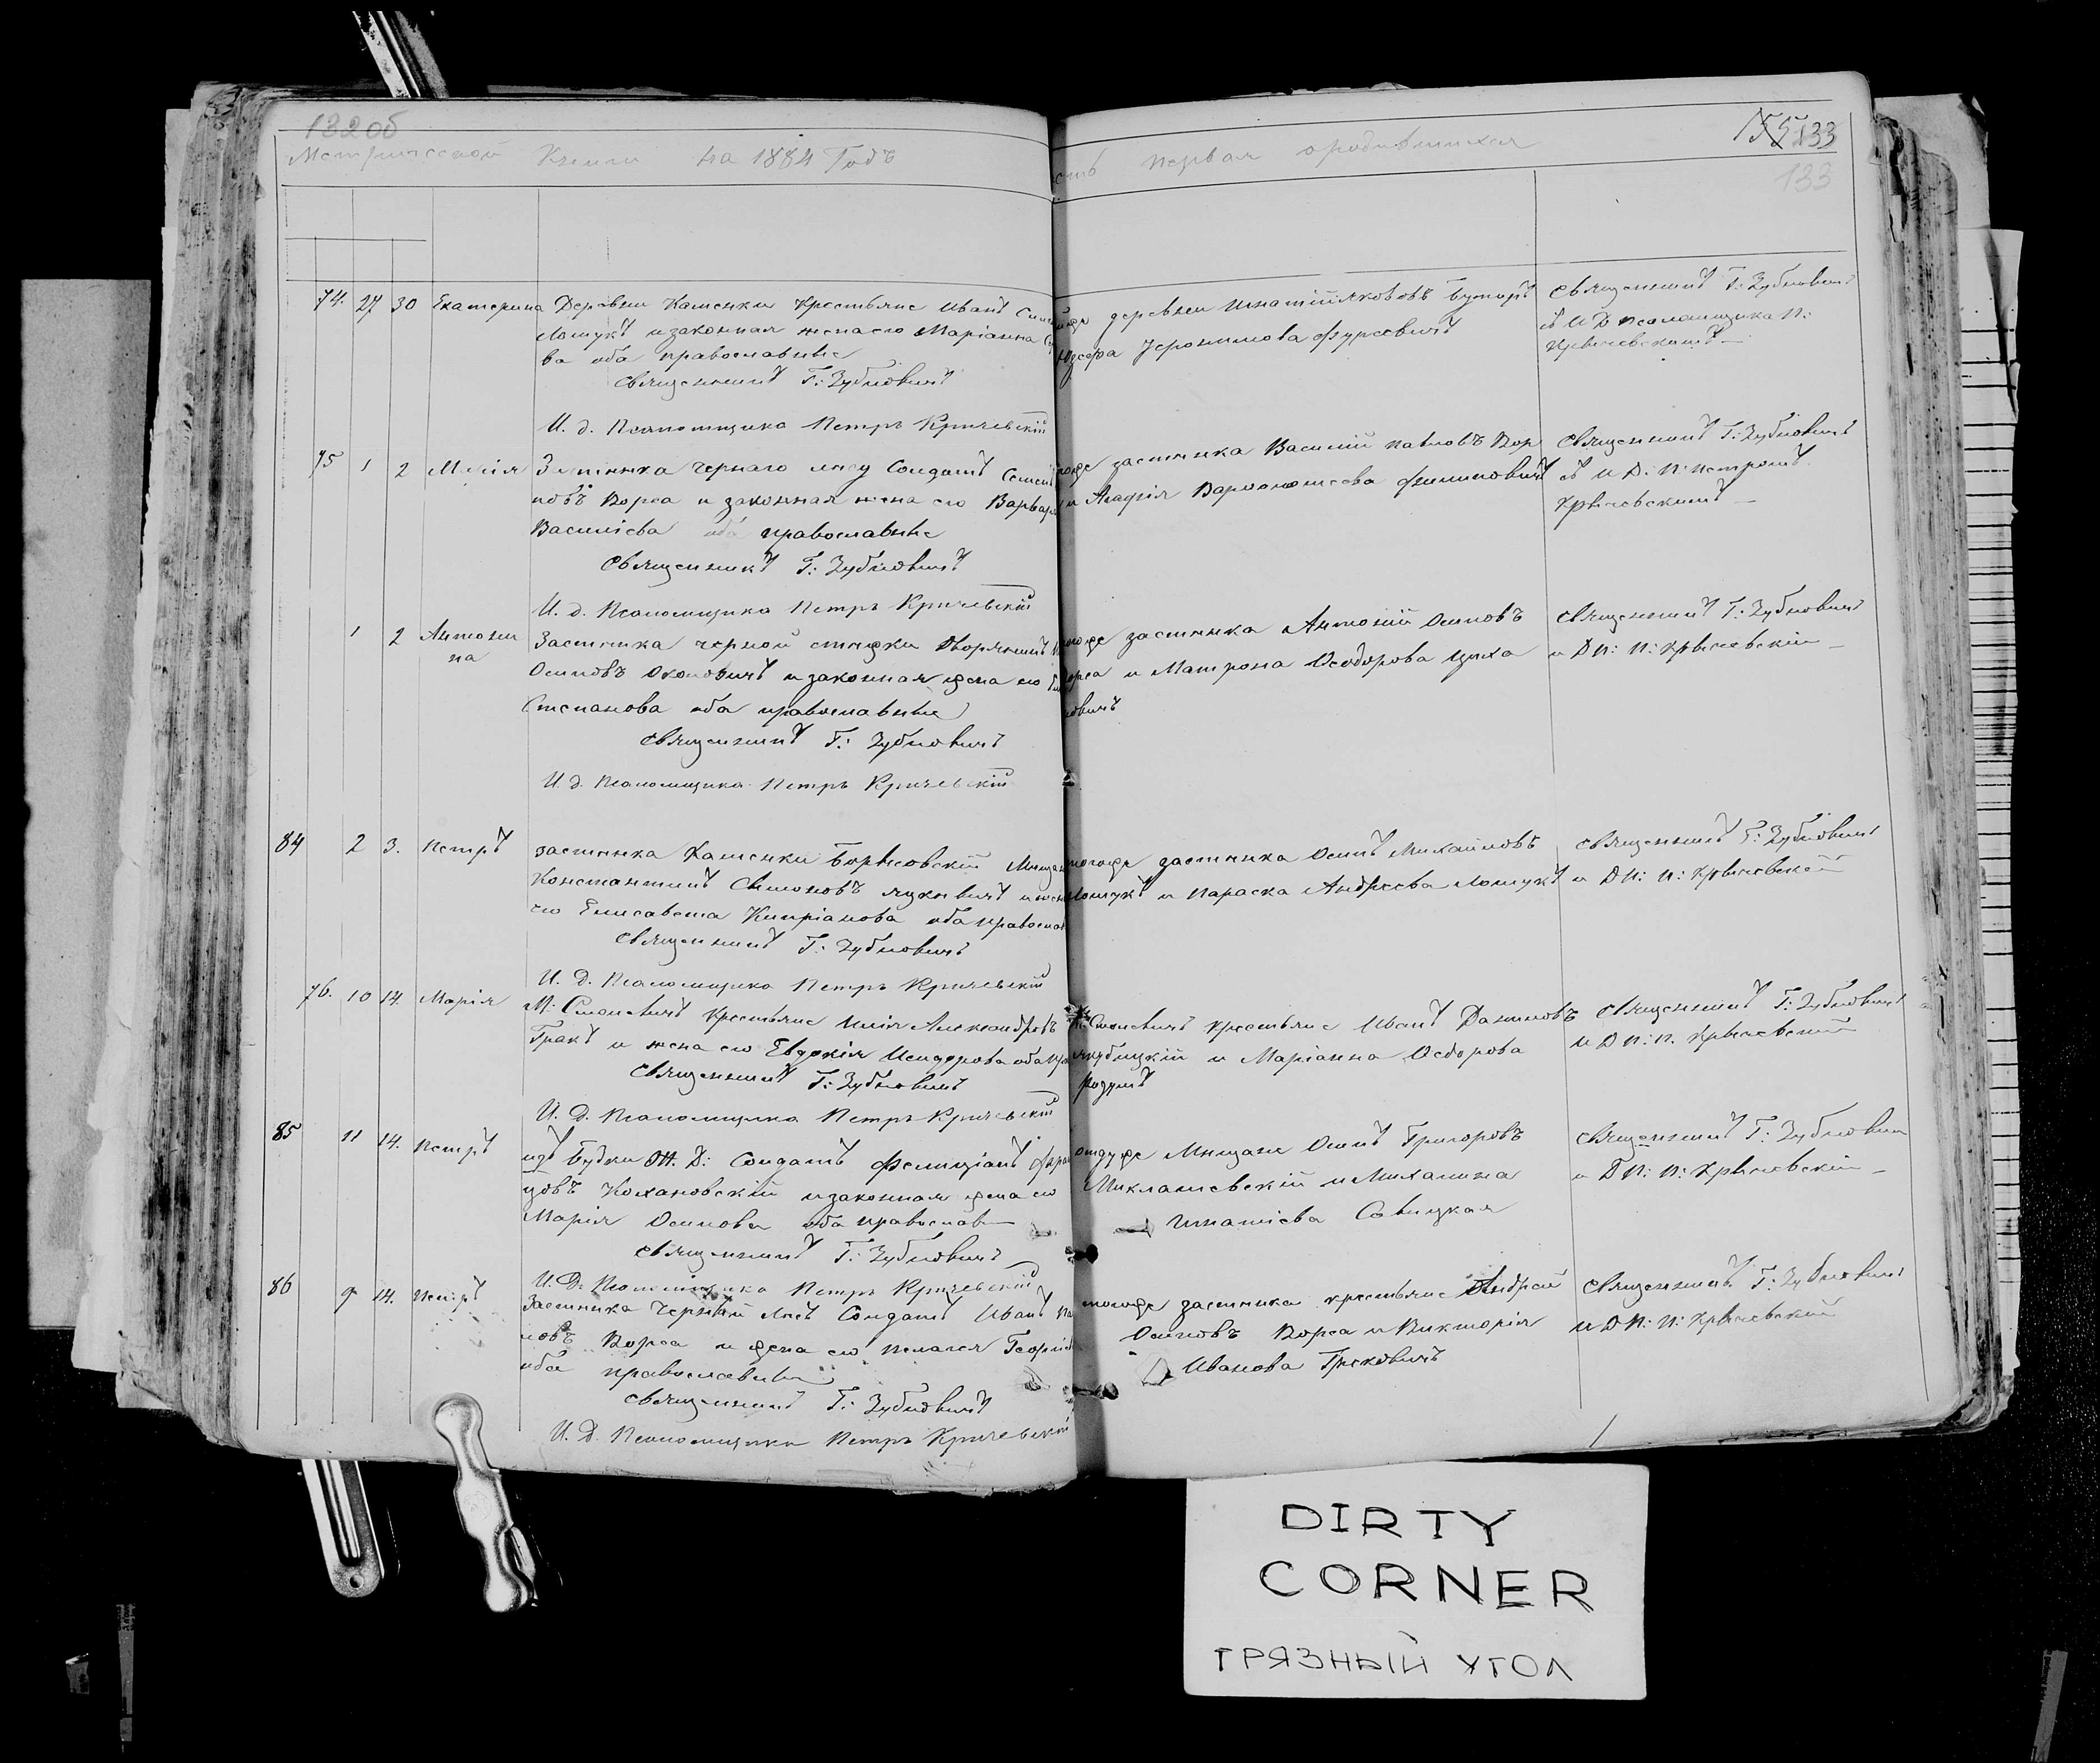 132об
Метрической Книги на 1884 Годъ
сть первая о родившихся
155 133
133
74. 27 30 Екатерина Деревни Каменки Крестьяне Иванъ
Лошукъ и законная жена его Маріанна
ва оба православные
Священникъ Г: Зубковичъ
И. д. Псаломщика Петръ Кричевскій
деревни Игнатій Якововъ
Юзефа Іеронимова Фурсевичъ
Священникъ Г: Зубковичъ
съ И Д псаломщика П:
Кричевскимъ
75 1 2 Марія Застѣнка Чернаго лѣсу Солдатъ
новъ Ворса и законная жена его Варвара
Василіева оба православные
Священникъ Г: Зубковичъ
И. д. Псаломщика Петръ Кричевскій
застѣнка Василій Павловъ Вор
и Агафія Варфоломеева Филиповичъ
Священникъ Г: Зубковичъ
съ И Д: П: Петромъ
Кричевскимъ
1 2 Антони
на
Застѣнка черной Дворянинъ
Осиповъ и законная жена его
Степанова оба православные
Священникъ Г: Зубковичъ
И. д. Псаломщика Петръ Кричевскій
тогоже застѣнка Антоній Осиповъ
Ворса и Матрона Ѳеодорова
новичъ
Священникъ Г: Зубковичъ
и Д П: П: Кричевскій
84 2 3. Петръ застѣнка Каменки Борисовскій Мещан
Константинъ Симоновъ и жен
его Елисавета Кипріанова оба правосла
Священникъ Г: Зубковичъ
И. Д. Псаломщика Петръ Кричевскій
тогоже застѣнка Осипъ Михайловъ
Лошукъ и Параска Андреева Лошукъ
Священникъ Г: Зубковичъ
и Д П: П: Кричевскій
76. 10 14. Марія М: Смолевичъ Крестьяне Илія Александровъ
Гракъ и жена его Евдокія Исидорова оба пра
Священникъ Г: Зубковичъ
И. Д. Псаломщика Петръ Кричевскій
М: Смолевичъ крестьяне Иванъ Даниловъ
Якубицкій и Маріанна Ѳедорова
Разумъ
Священникъ Г: Зубковичъ
и Д П: П. Кричевскій
85 11 14. Петръ изъ Будки Ж. Д: Солдатъ Фелиціанъ Фран
цовъ Кохановскій и законная жена его
Марія Осипова оба православ
Священникъ Г: Зубковичъ
И. Д. Псаломщика Петръ Кричевскій
оттудже Мещане Осипъ Григоровъ
Миклашевскій и Михалина
Игнатіева Савицкая
Священникъ Г: Зубковичъ
и Д П: П: Кричевскій
86 9 14. Петръ Застѣнка Черный лѣсъ Солдатъ Иванъ Па
ловъ Ворса и жена его Пелагея Георгіев
оба православные
Священникъ Г: Зубковичъ
И. Д. Псаломщика Петръ Кричевскій
тогоже застѣнка крестьяне Андрей
Осиповъ Ворса и Викторія
Иванова Грековичъ
Священникъ Г: Зубковичъ
и Д П: П: Кричевскій
DIRTY
CORNER
ГРЯЗНЫЙ УГОЛ